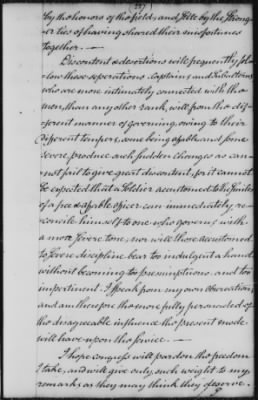 by the honors of the field, and still by the stronger
ties of having shared their misfortunes
together. —
Discontent & desertions will frequently fol-
low these seperations. Captains, and Subalterns
who are more intimately connected with the
men, than any other rank, will from the dif-
ferent manner of governing, owing to their
different tempers, some being affable and some
severe produce such sudden changes as can-
not fail to give great discontent, for it cannot
be expected that a Soldier accustomed to the smiles
of a free & affable officer can immediately, re-
concile himself to one who governs with
a more severe tone, nor will those accustomed
to severe discipline bear too indulgent a hand
without becoming too presumptious, and too
impertinent. I speak from my own observations,
and am therefore the more fully persuaded of
the disagreeable influence the present mode
will have upon the service. —
I hope congress will pardon the freedom
I take, and will give only, such weight to my
remarks, as they may think they deserve.